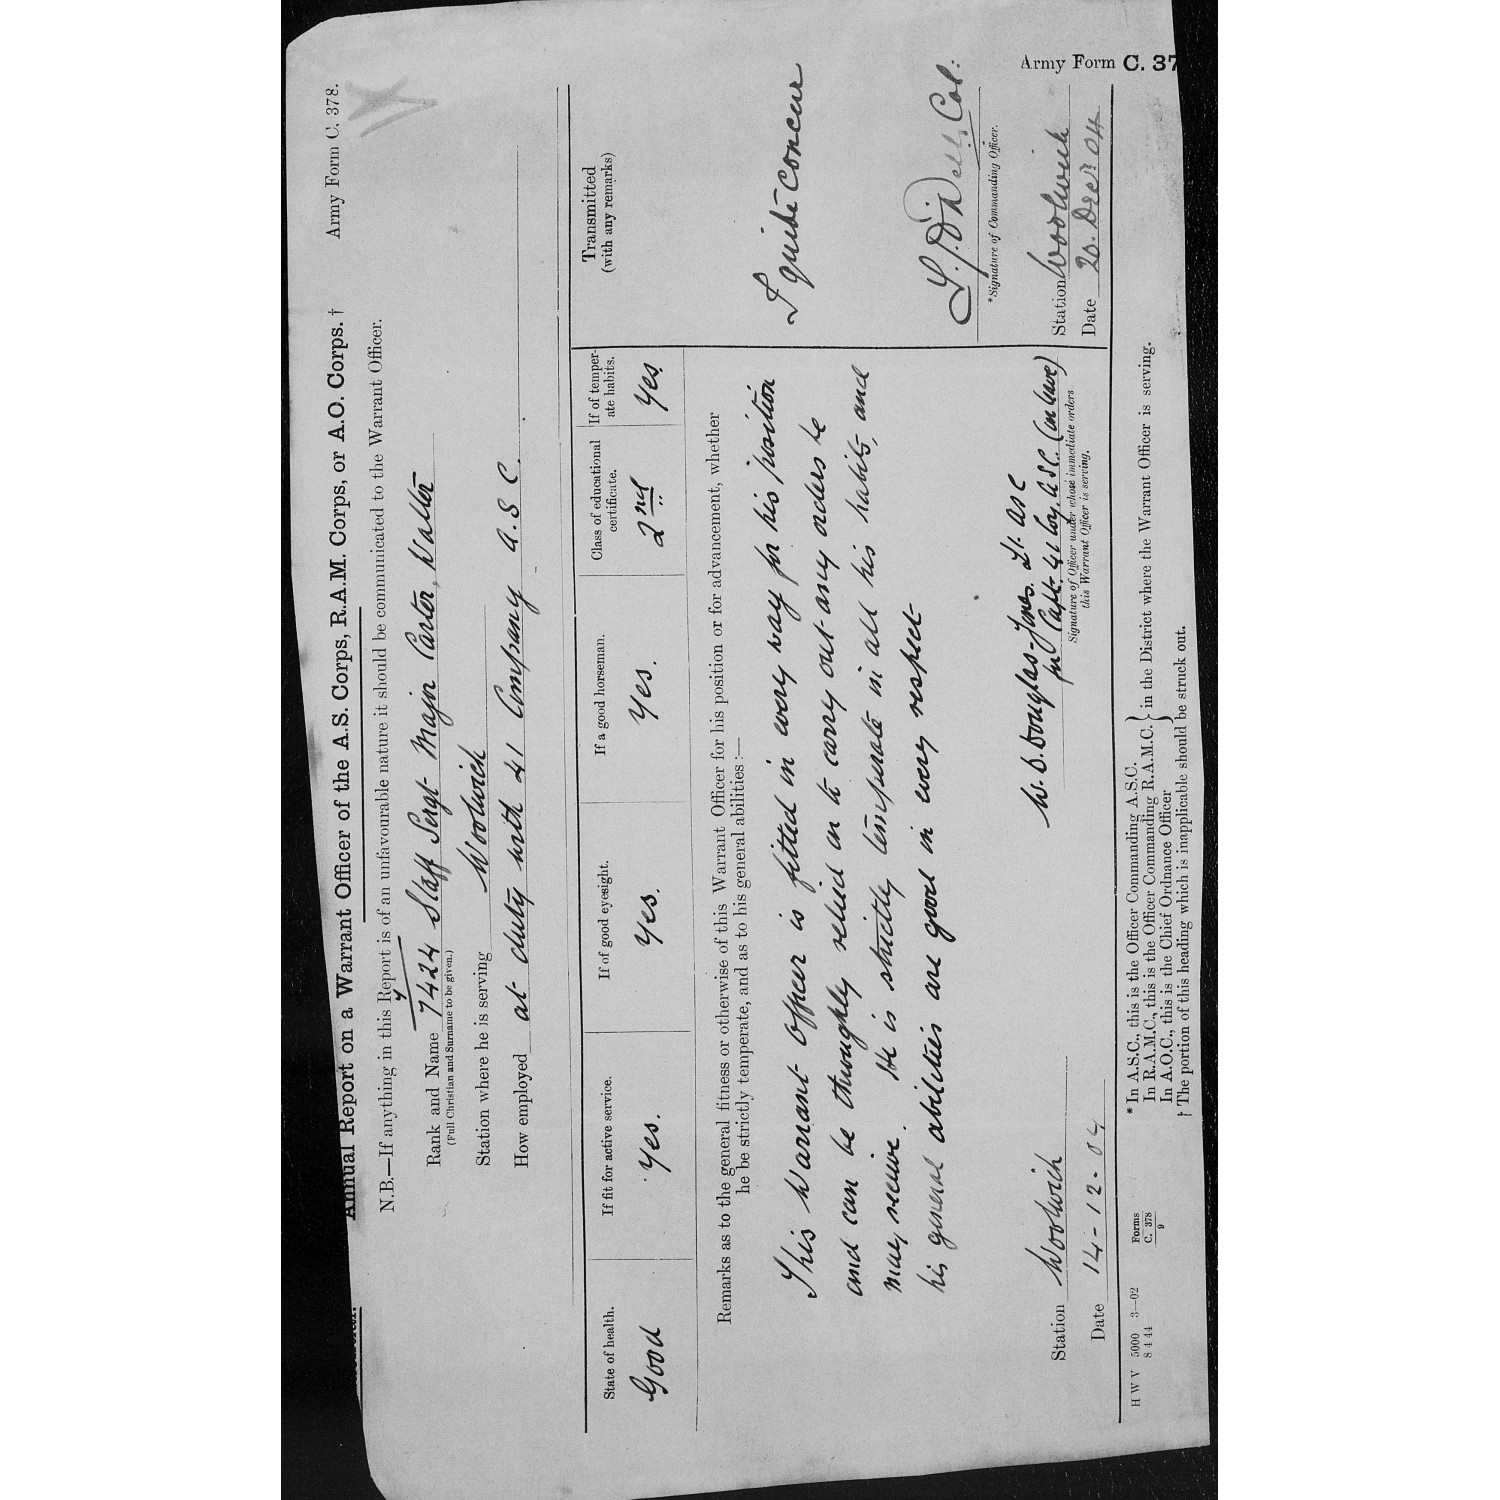 Army Form C. 37
Annual Report on a Warrant Officer of the A.S. Corps, R.A.M. Corps, or A.O. Corps. † Army Form C. 378.
N.B.—If anything in this Report is of an unfavourable nature it should be communicated to the Warrant Officer.
Rank and Name 7424 Staff Sergt Major Carter, Walter
(Full Christian and Surname to be given.)
Station where he is serving Woolwich
How employed at duty with 41 Company A.S.C.
State of health. If fit for active service. If of good eyesight. If a good horseman. Class of educational certificate. If of temperate habits. Transmitted
(with any remarks)
Good Yes. Yes. Yes. 2nd Yes.
Remarks as to the general fitness or otherwise of this Warrant Officer for his position or for advancement, whether
he be strictly temperate, and as to his general abilities:—
This Warrant Officer is fitted in every way for his position
and can be thoroughly relied on to carry out any orders he
may receive. He is strictly temperate in all his habits, and
his general abilities are good in every respect
I quite concur
Col.
*Signature of Commanding Officer.
Station Woolwich
Date 20. Decr 04
W. D. Douglas-Jones. Lt. ASC
for Capt. 41 Coy. A.S.C. (on leave)
Signature of Officer under whose immediate orders
this Warrant Officer is serving.
Station Woolwich
Date 14-12-04
* In A.S.C., this is the Officer Commanding A.S.C.
In R.A.M.C., this is the Officer Commanding R.A.M.C. } in the District where the Warrant Officer is serving.
In A.O.C., this is the Chief Ordnance Officer
† The portion of this heading which is inapplicable should be struck out.
H W V 5000 3—02
8 4 44
Forms
C. 378
9